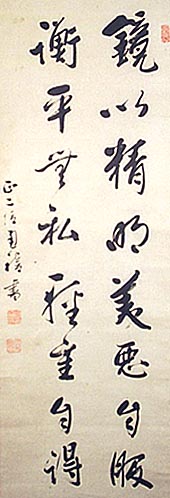 鏡以精明美悪自服
衡平無私軽重自得
正二位有積書